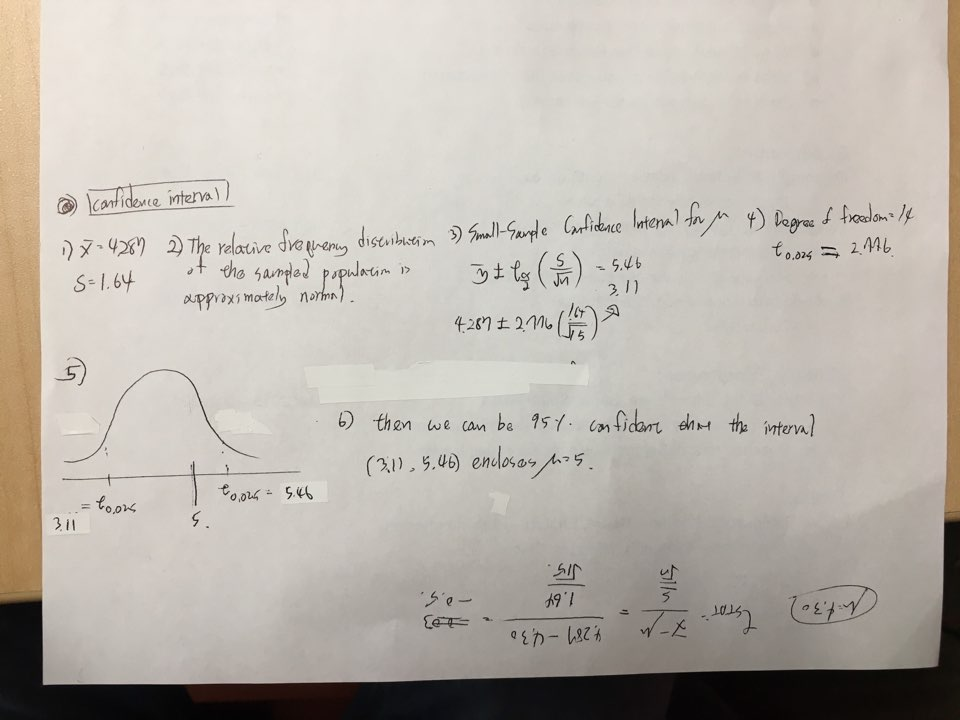 Confidence interval
1) x̄ = 4.287
S = 1.64
2) The relative frequency distribution
of the sampled population is
approximately normal.
3) Small-Sample Confidence Interval for μ
ȳ ± t α/2 (S/√n) = 5.46
3.11
4.287 ± 2.776 (1.64/√15)
4) Degree of freedom = 14
t0.025 = 2.776
5)
= t0.025
3.11
5.
t0.025 = 5.46
6) then we can be 95% confident that the interval
(3.11, 5.46) encloses μ=5.
μ=4.30
tSTAT = x̄-μ / S/√n = 4.287-4.30 / 1.64/√15 =